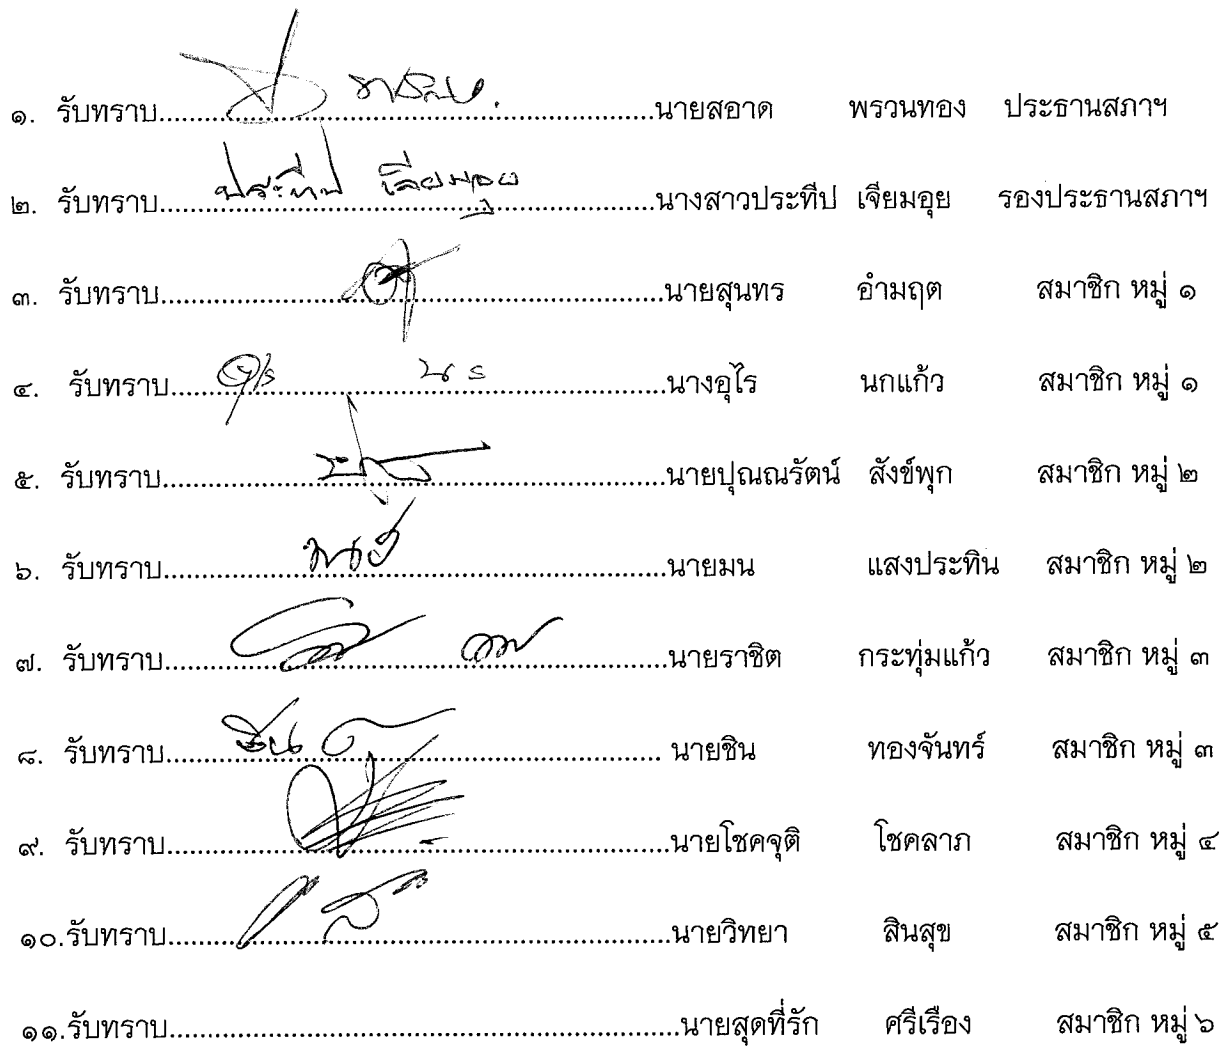 ๑. รับทราบ.................................................................นายสอาด พรวนทอง ประธานสภาฯ
๒. รับทราบ ประทีป เจียมอุย นางสาวประทีป เจียมอุย รองประธานสภาฯ
๓. รับทราบ.................................................................นายสุนทร อำมฤต สมาชิก หมู่ ๑
๔. รับทราบ.................................................................นางอุไร นกแก้ว สมาชิก หมู่ ๑
๕. รับทราบ.................................................................นายปุณณรัตน์ สังข์พุก สมาชิก หมู่ ๒
๖. รับทราบ.................................................................นายมน แสงประทิน สมาชิก หมู่ ๒
๗. รับทราบ.................................................................นายราชิต กระทุ่มแก้ว สมาชิก หมู่ ๓
๘. รับทราบ................................................................. นายชิน ทองจันทร์ สมาชิก หมู่ ๓
๙. รับทราบ.................................................................นายโชคจุติ โชคลาภ สมาชิก หมู่ ๔
๑๐.รับทราบ.................................................................นายวิทยา สินสุข สมาชิก หมู่ ๕
๑๑.รับทราบ.................................................................นายสุดที่รัก ศรีเรือง สมาชิก หมู่ ๖